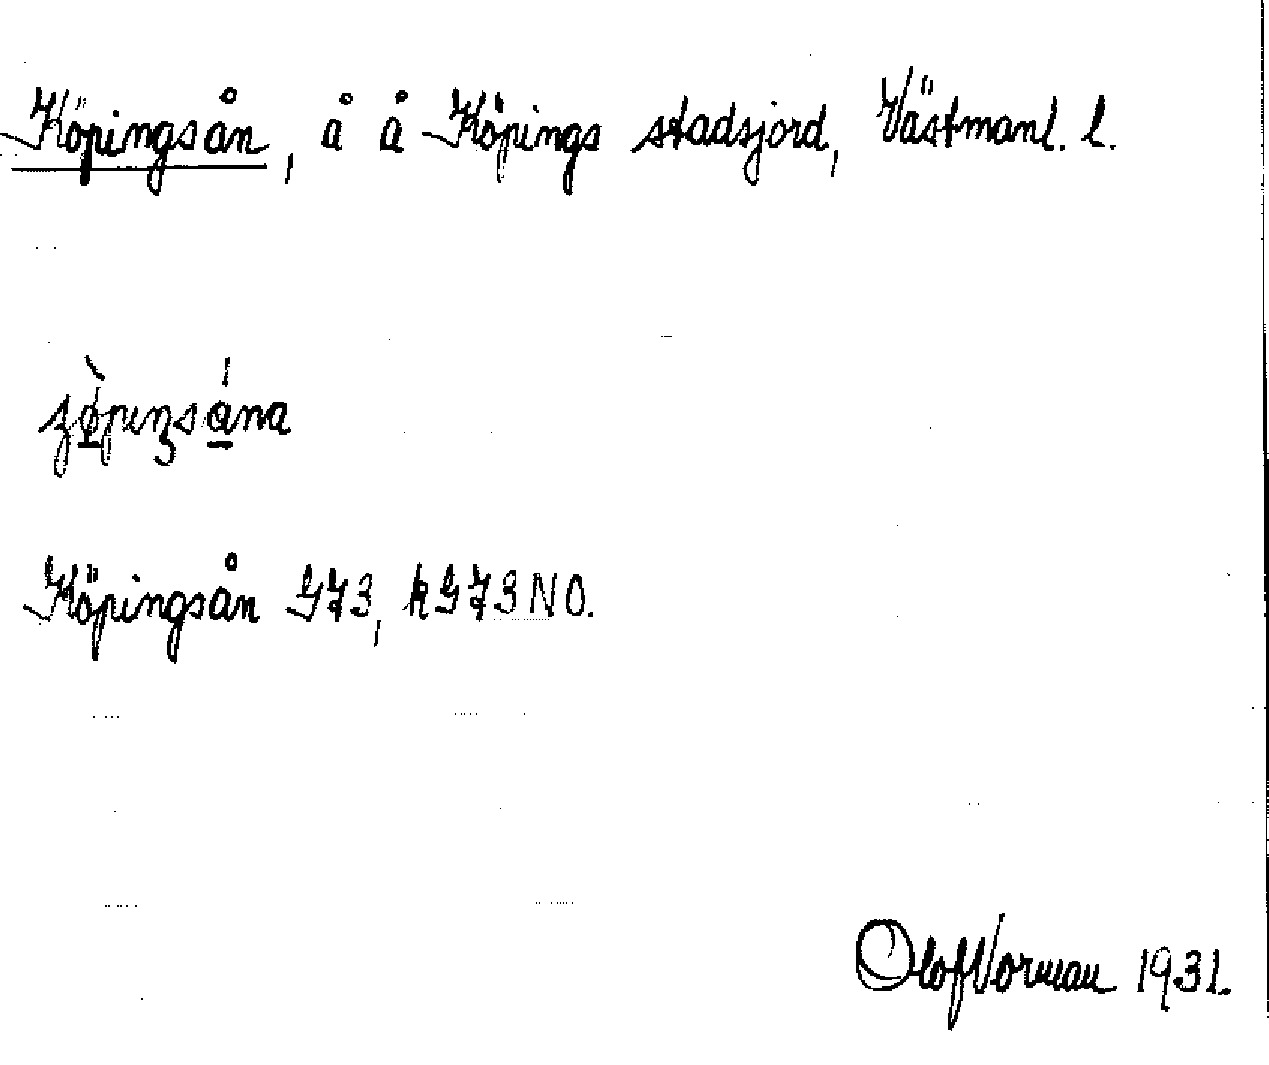 Köpingsån, å å Köpings stadsjord, Västmanl. l.
Köpingsån G73, kG73NO.
Olof Vorman 1931.